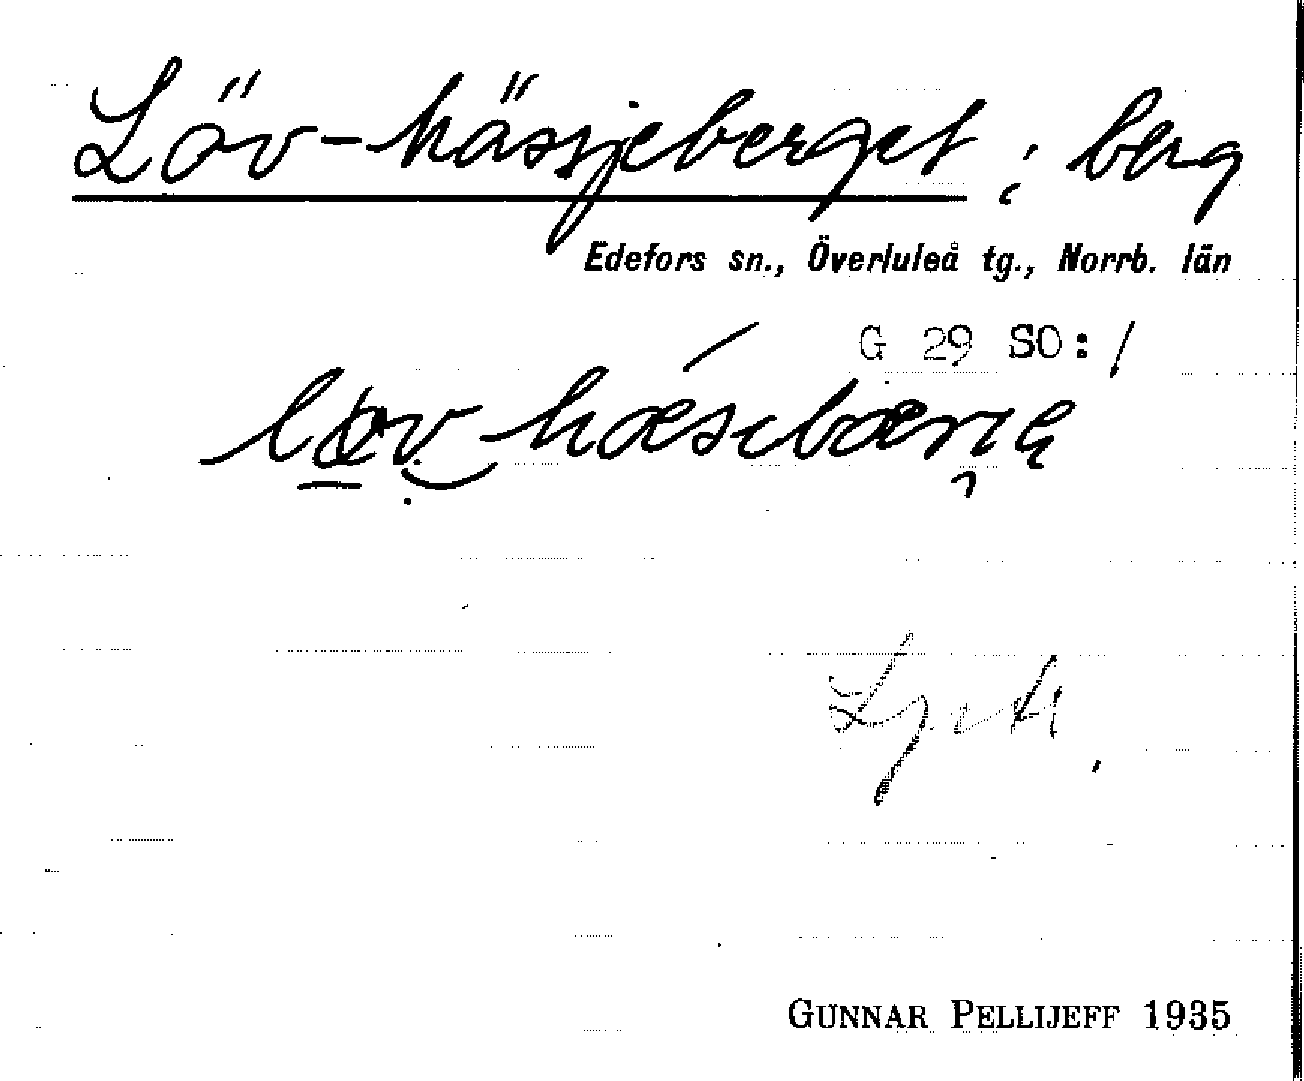 Löv-hässjeberget ; berg
Edefors sn., Överluleå tg., Norrb. län
G 29 SO: /
GUNNAR PELLIJEFF 1935